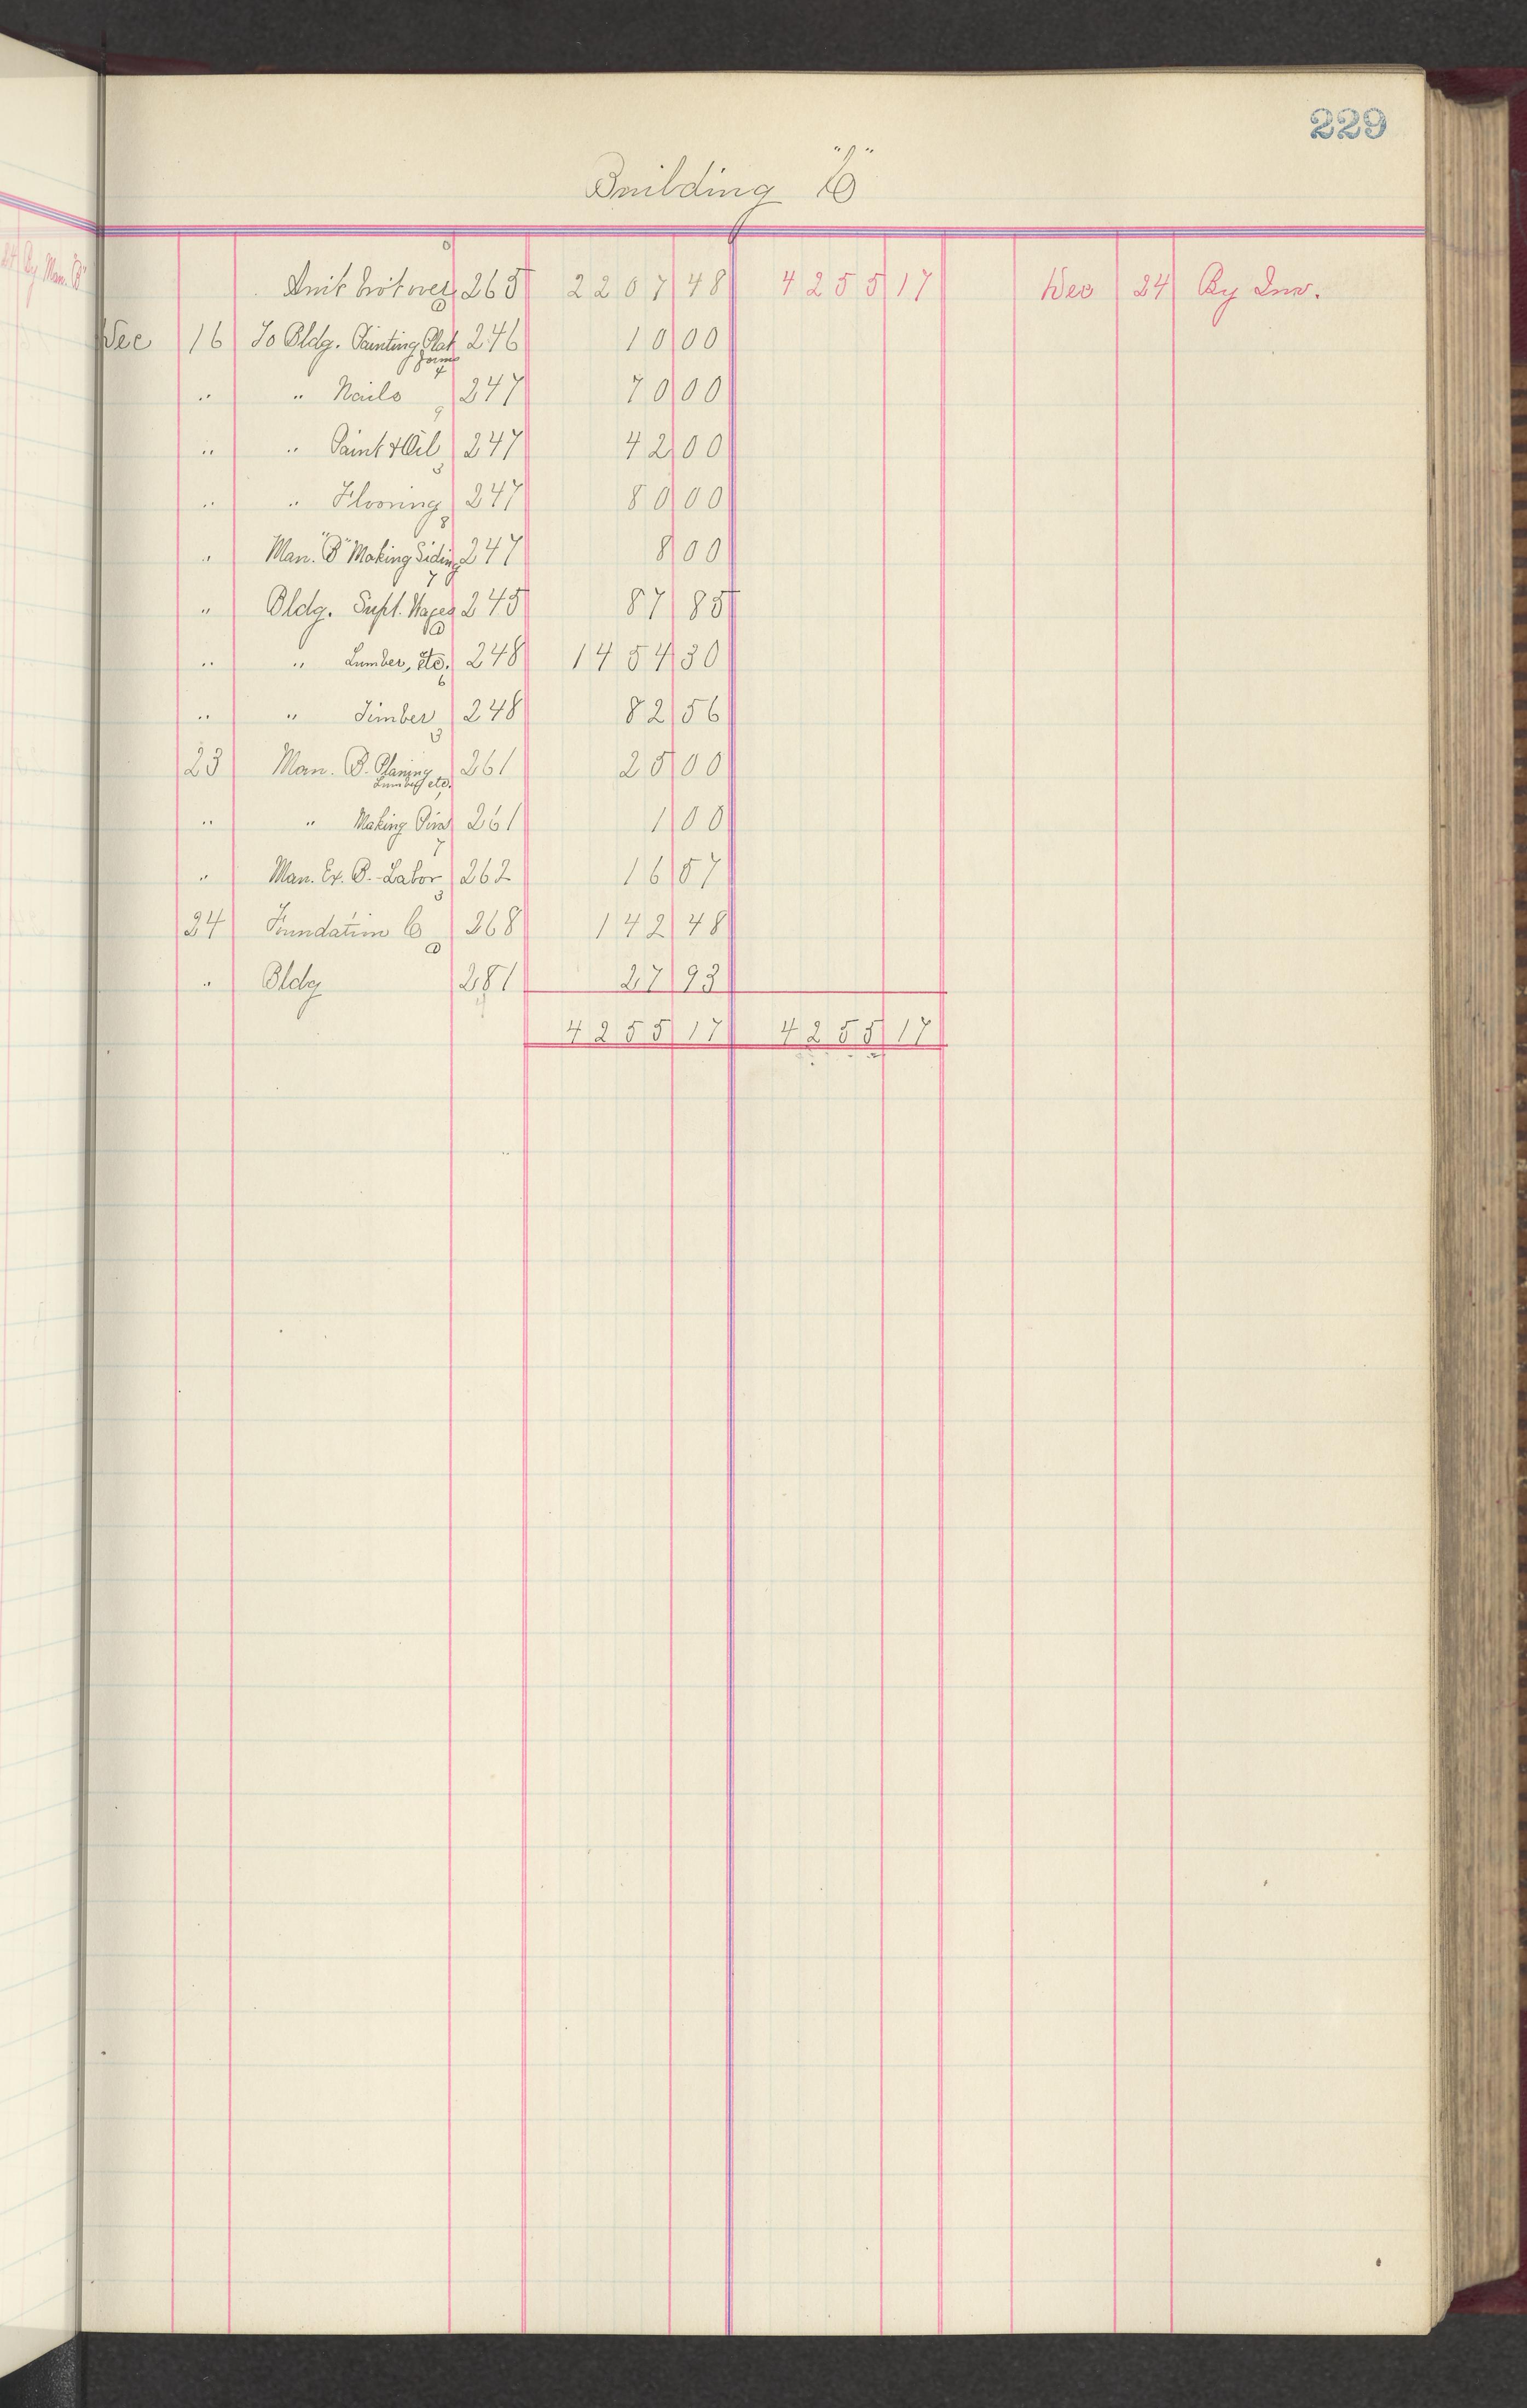 229
Building "C"
265 2207 48 4255 17 Dec 24 By Inv.
Dec 16 To Bldg. Painting Plat forms 246 10 00
" " Nails 247 70 00
" " Paint & Oil 247 42 00
" " Flooring 247 80 00
" Man. "B" Making Siding 247 8 00
" Bldg. Supt. Wages 245 87 85
" " Lumber, etc. 248 1454 30
" " Timber 248 82 56
23 Man. B. Planing Lumber etc. 261 25 00
" " Making 261 1 00
" Man. Ex. B. - Labor 262 16 57
24 Foundation C 268 142 48
" Bldg 281 27 93
4255 17 4255 17
24 By Man. "B"